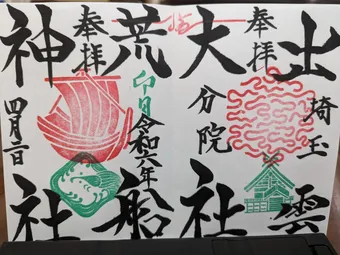 出雲
埼玉
奉拝
大社
分院
荒船
令和六年
卯月
奉拝
神社
四月二日